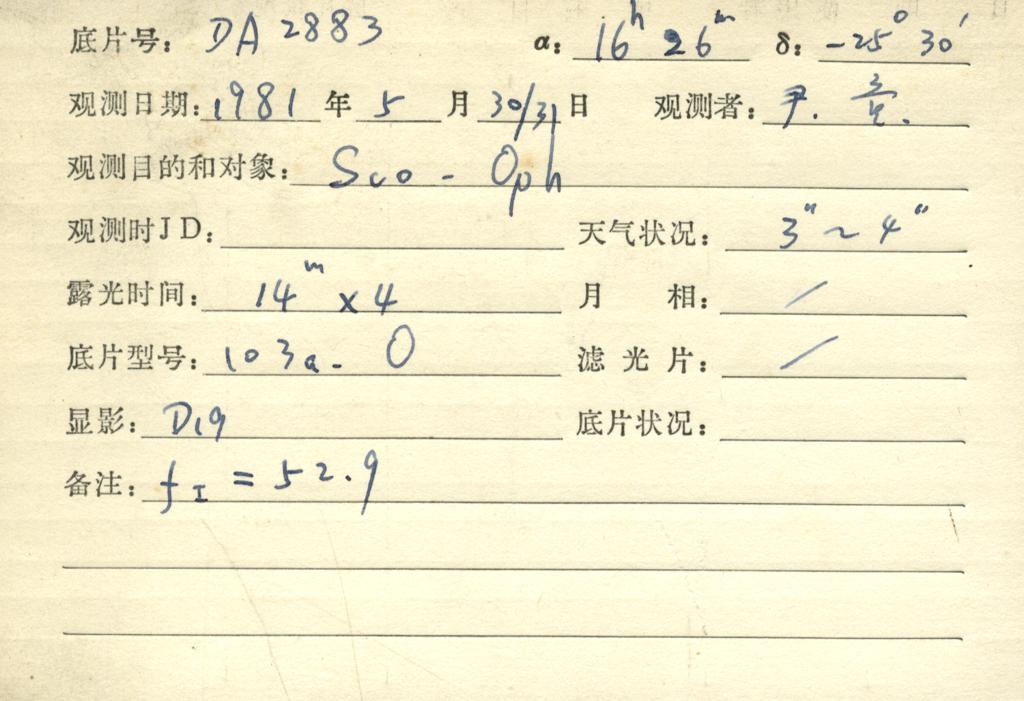 底片号: DA 2883 α: 16ʰ 26ᵐ δ: -25° 30′
观测日期: 1981 年 5 月 30/31 日 观测者: 尹.
观测目的和对象: Sco - Oph
观测时JD: 天气状况: 3" ~ 4"
露光时间: 14ᵐ x 4 月 相: /
底片型号: 103a-O 滤光片: /
显影: D19 底片状况:
备注: f_I = 52.9